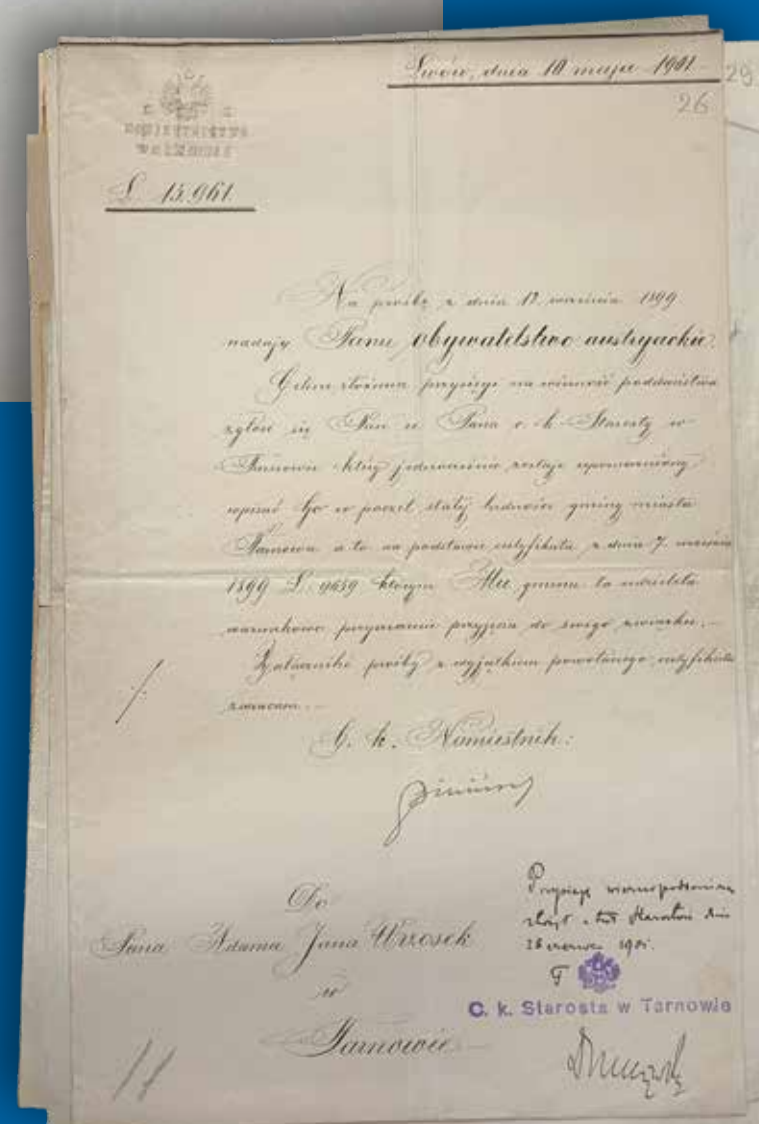 Lwów, dnia 10 maja 1901.
29
26
L. 15.961.
Na prośbę z dnia 12. września 1899
nadaję Panu obywatelstwo austryackie.
Celem złożenia przysięgi na wierność poddaństwa
zgłosi się Pan u Pana c. k. Starosty w
Tarnowie który jednocześnie zostaje upoważniony
wpisać Go w poczet stałej ludności gminy miasta
Tarnowa a to na podstawie certyfikatu z dnia 7. września
1899 L. 9659 którym Mu gmina ta udzieliła
warunkowo przyrzeczenie przyjęcia do swego związku.
Załączniki prośby z wyjątkiem powołanego certyfikatu
zwracam.
C. k. Namiestnik:
Do
Pana Adama Jana Wrzosek
w
Tarnowie
Przysięgę
złożył
czerwca 1901.
C. k. Starosta w Tarnowie